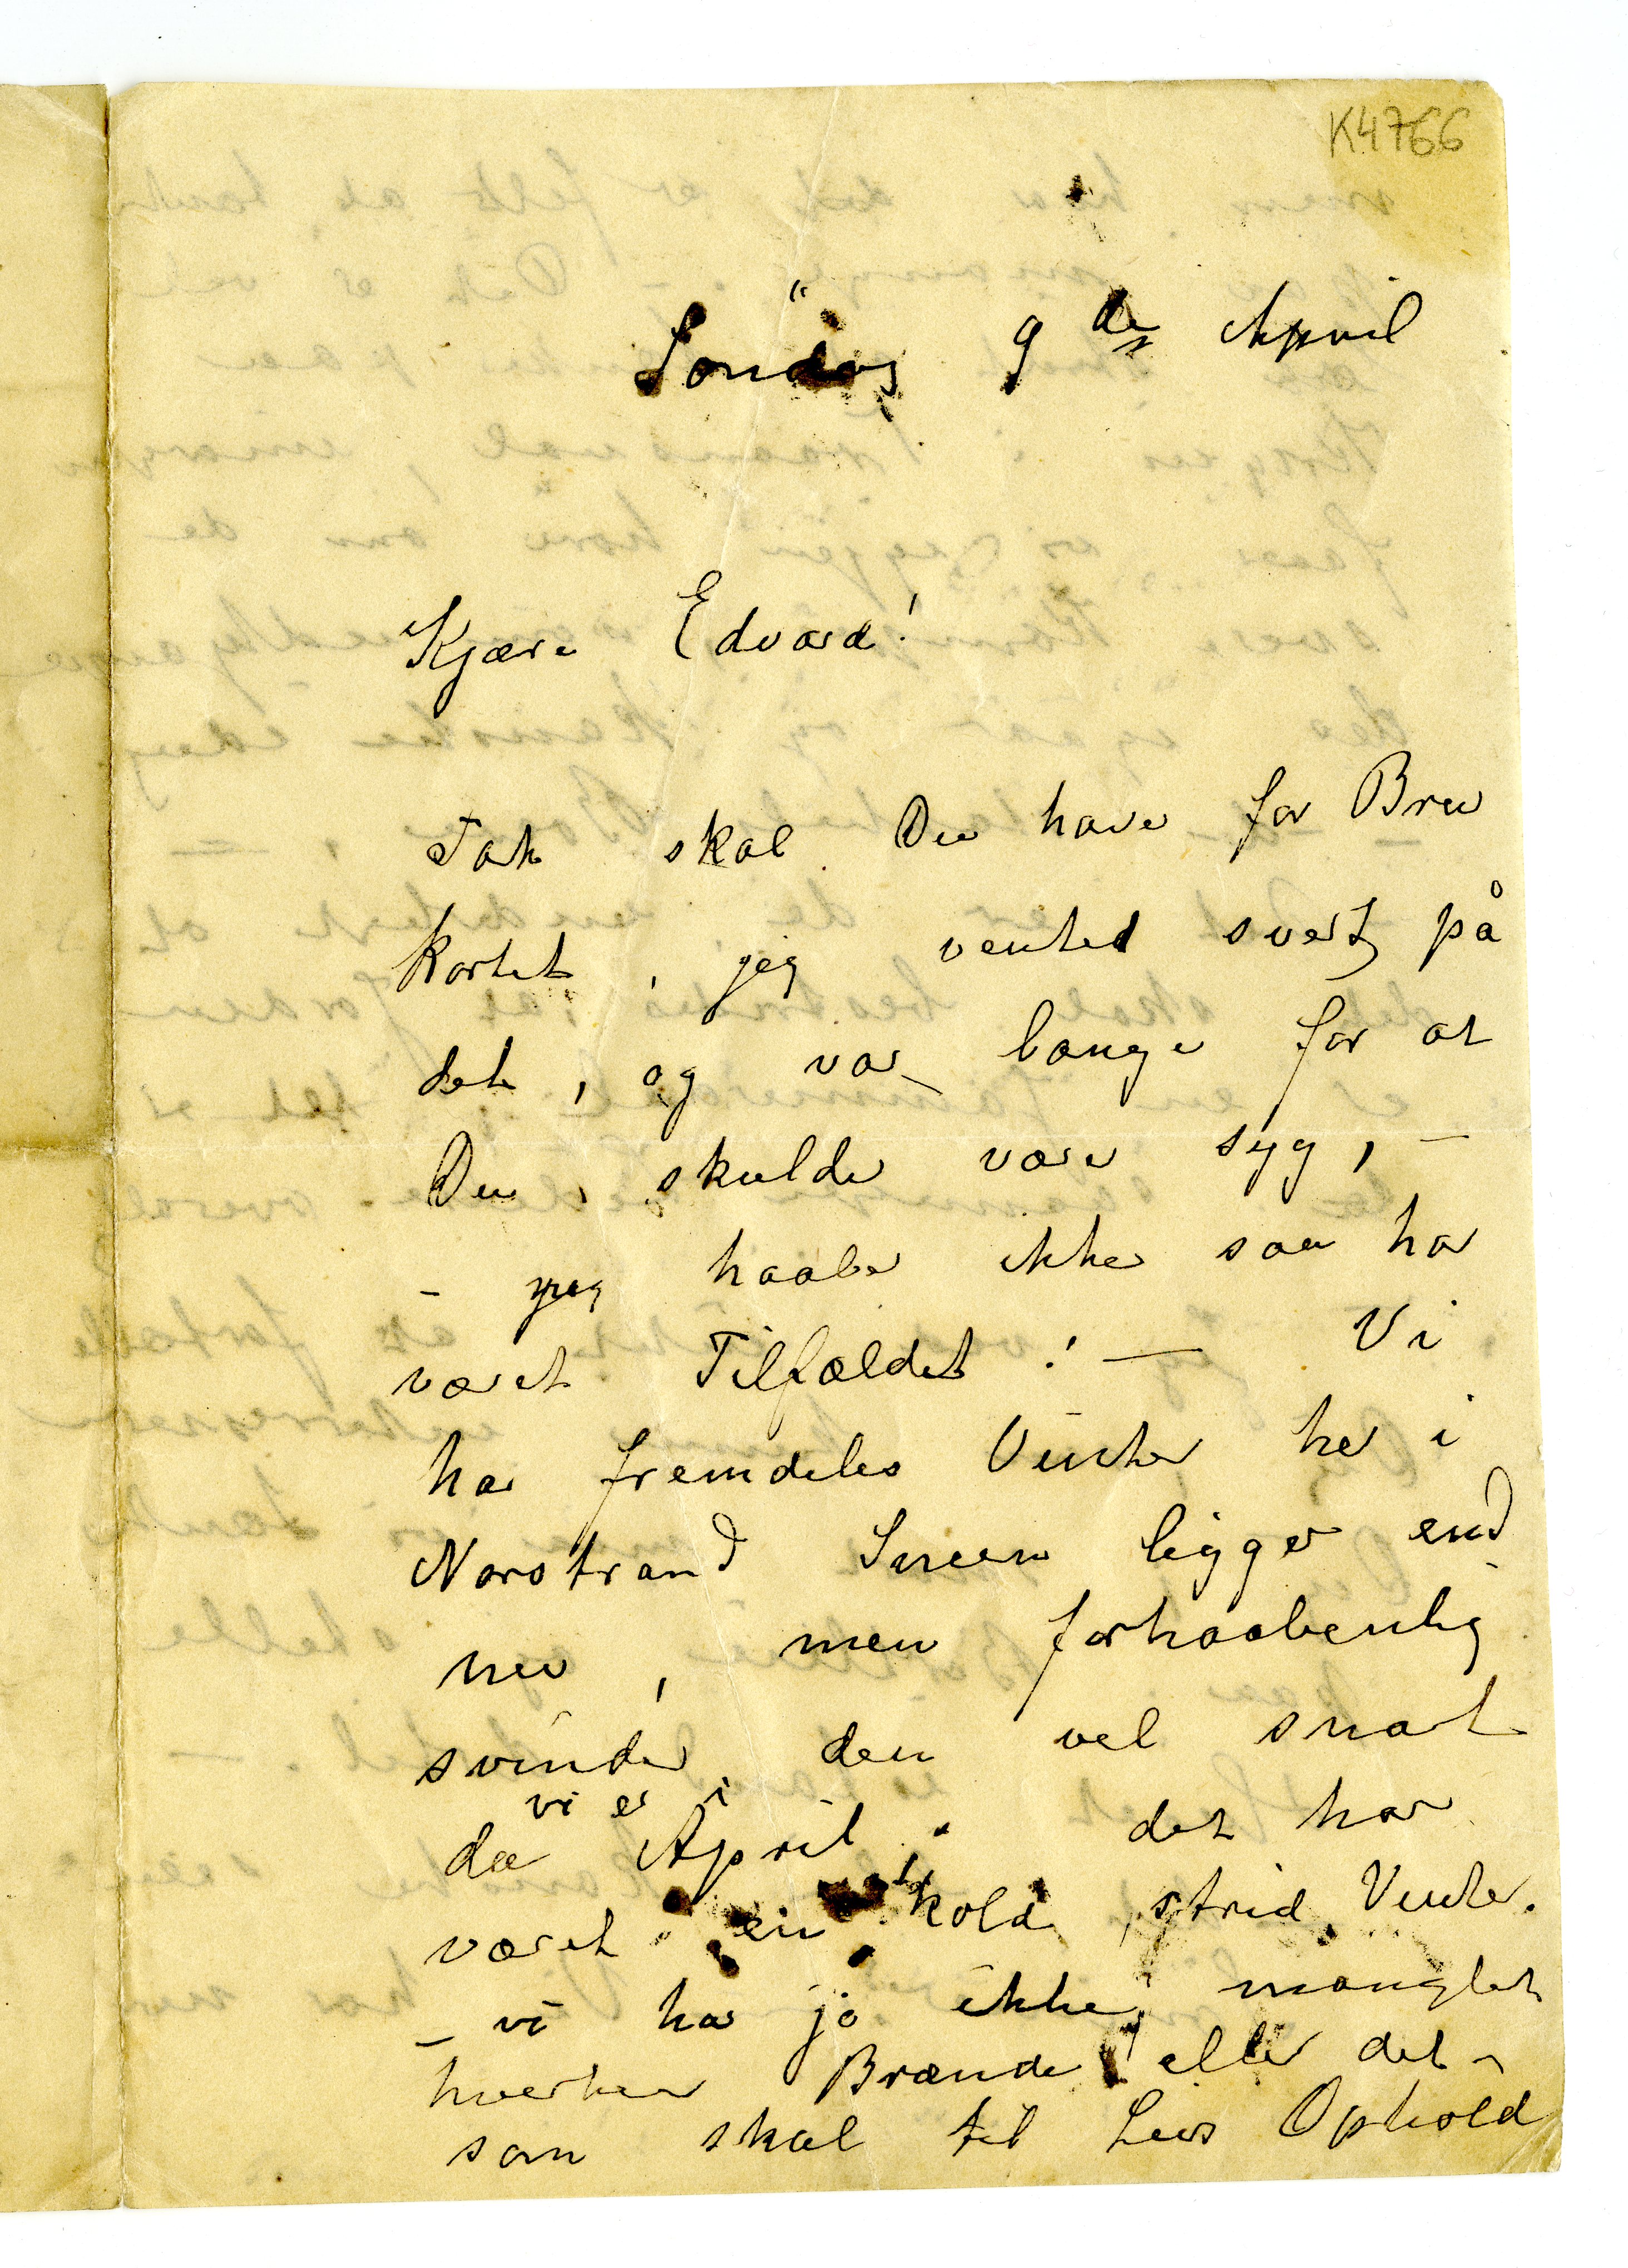 K4766
Söndag 9de April
Kjære Edvard!
Tak skal Du have for Brev
kortet, jeg ventet svert på
det, og var bange for at
Du skulde være syg, –
– jeg haaber ikke saa har
været Tilfældet! — Vi
har fremdeles Vinter her i
Norstrand Sneen ligger end
nu, men forhaabentlig
svinder den vel snart
da vi er i April. det har
været en kold, strid Vinter.
– vi har jo ikke manglet
hverken Brænde eller det –
som skal til Livs Ophold